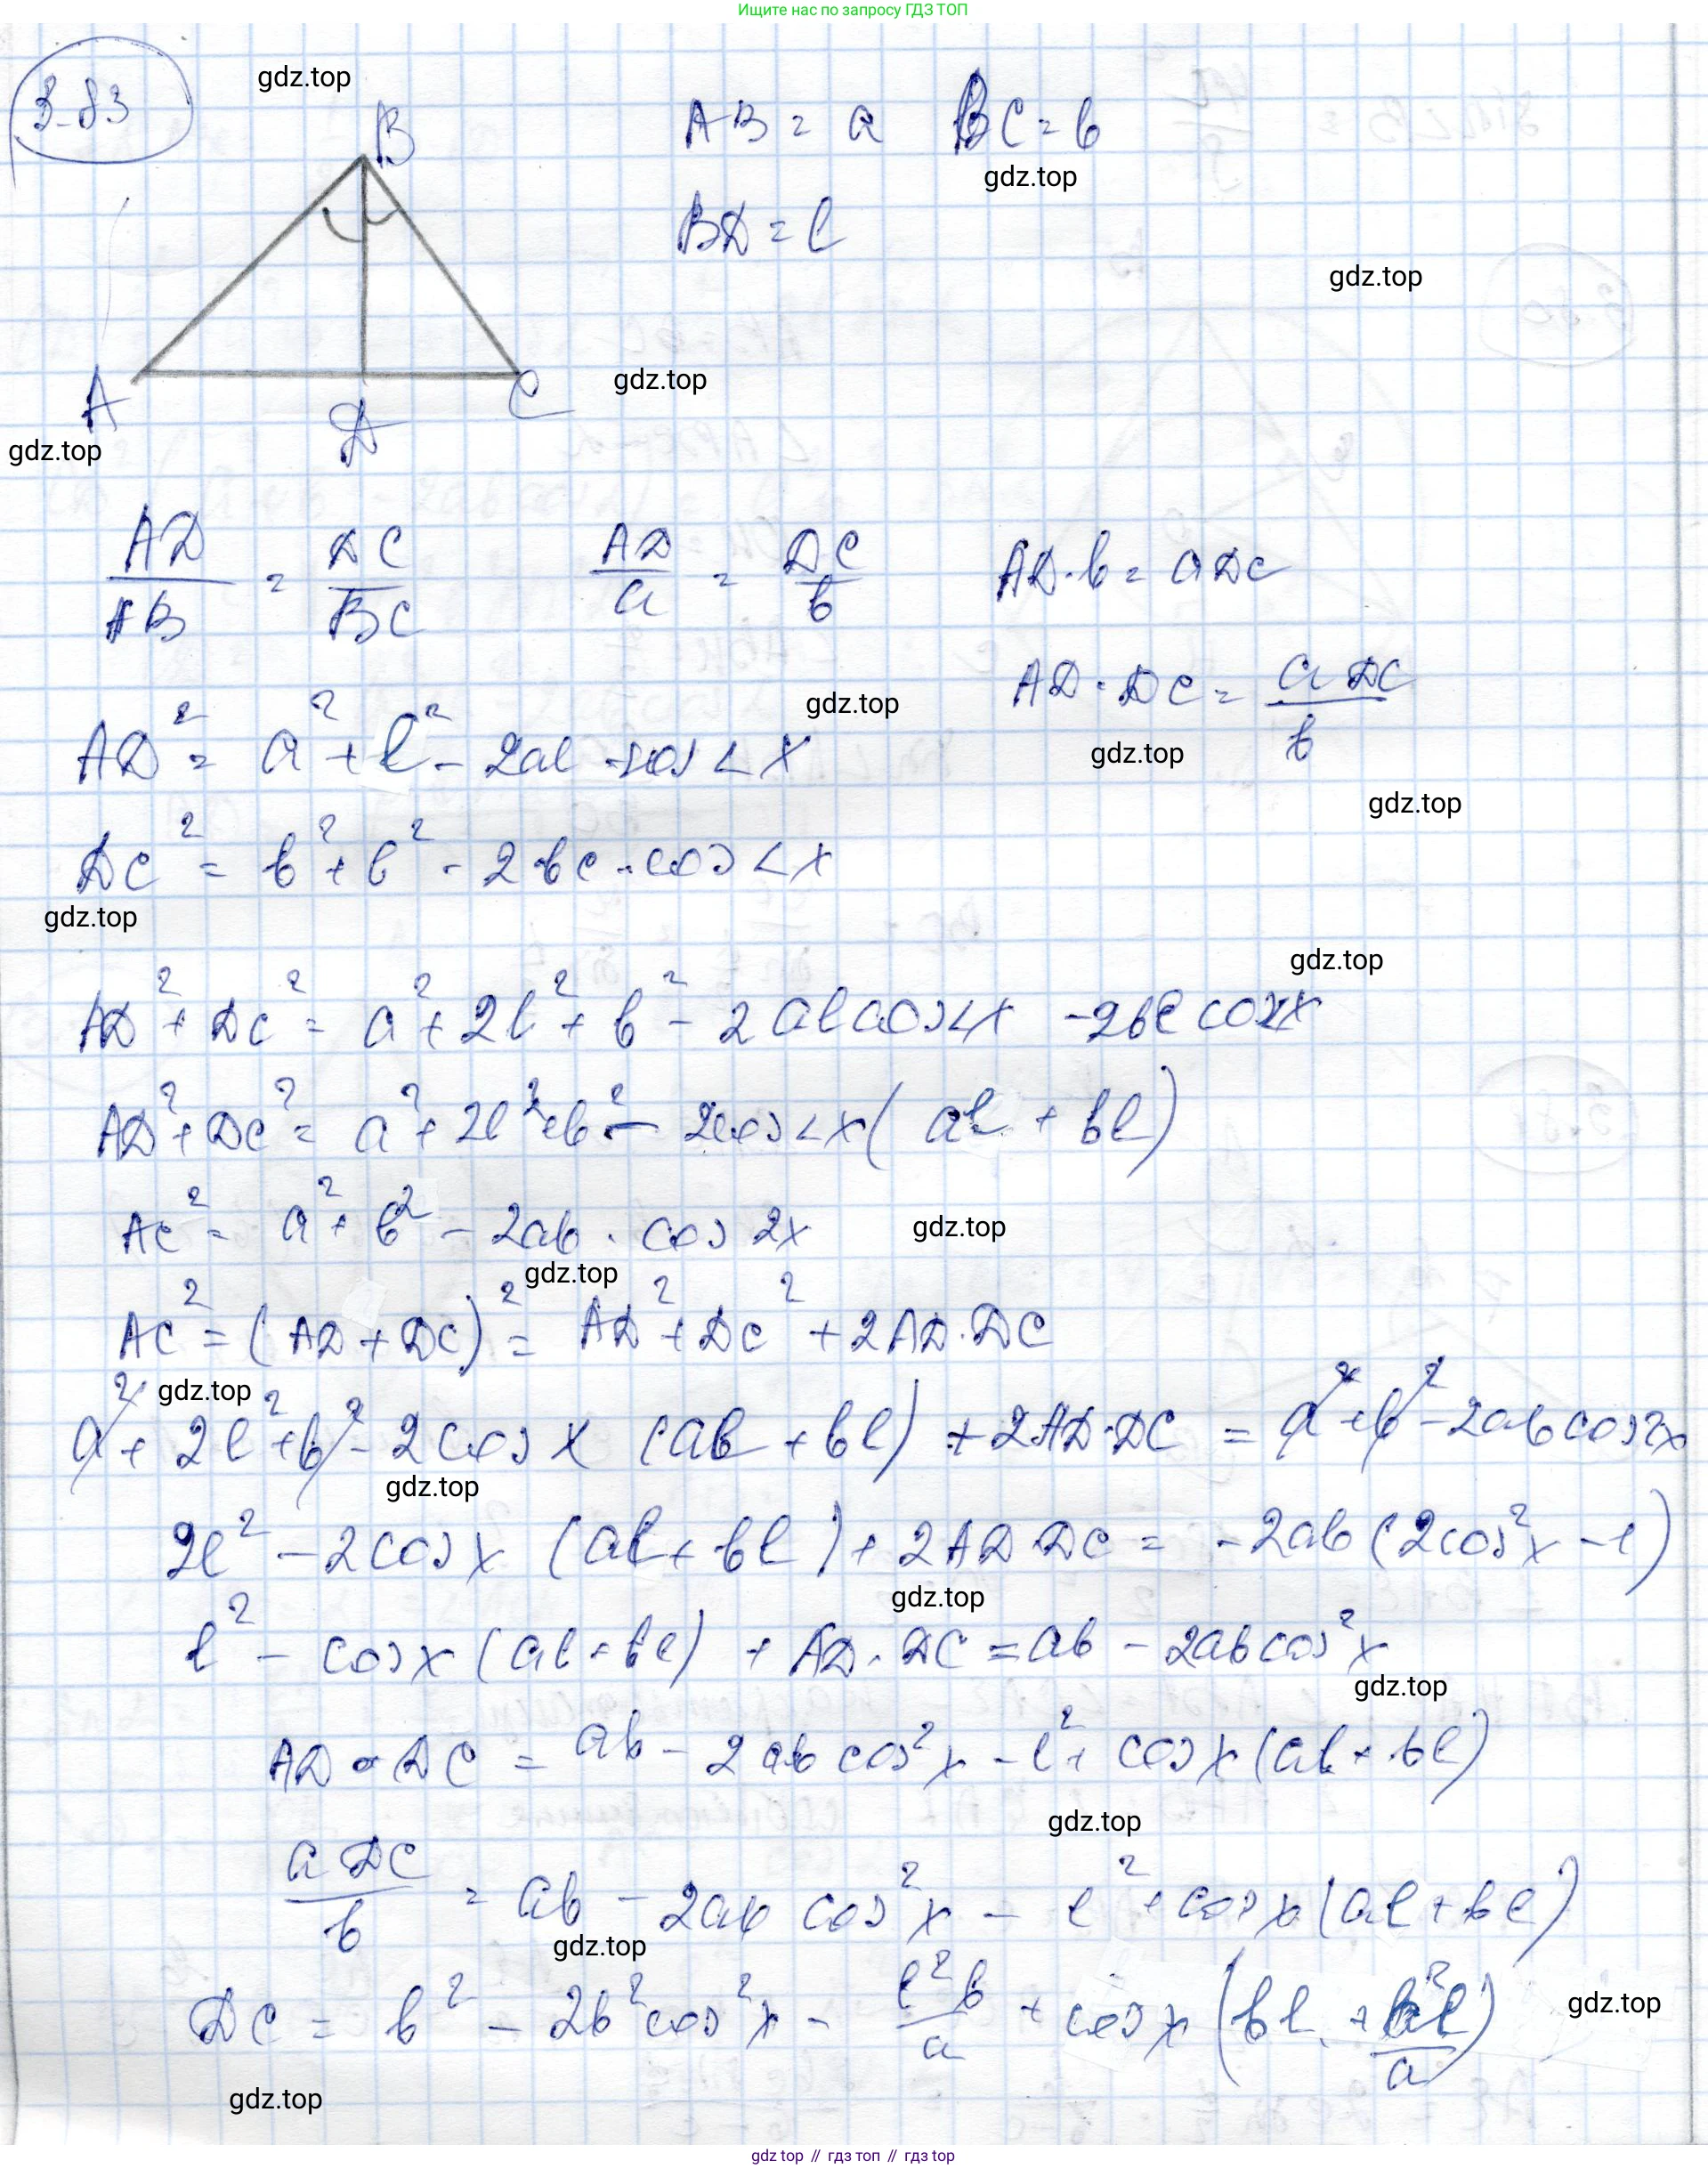 Ищите нас по запросу ГДЗ ТОП
3.83
gdz.top
B
AB = a BC = b
gdz.top
BD = l
gdz.top
gdz.top
A D C
gdz.top
AD/AB = DC/BC AD/a = DC/b AD·b = aDC
AD·DC = aDC/b
gdz.top
gdz.top
AD² = a² + l² - 2al·cos∠x
gdz.top
DC² = b² + l² - 2bc·cos∠x
gdz.top
gdz.top
AD² + DC² = a² + 2l² + b² - 2alcos∠x - 2blcos∠x
AD² + DC² = a² + 2l² + b² - 2cos∠x(al + bl)
AC² = a² + b² - 2ab·cos2x
gdz.top
gdz.top
AC² = (AD + DC)² = AD² + DC² + 2AD·DC
gdz.top
a² + 2l² + b² - 2cosx(al + bl) + 2AD·DC = a² + b² - 2abcos2x
gdz.top
2l² - 2cosx(al + bl) + 2AD·DC = -2ab(2cos²x - 1)
gdz.top
l² - cosx(al + bl) + AD·DC = ab - 2abcos²x
gdz.top
AD·DC = ab - 2abcos²x - l² + cosx(al + bl)
gdz.top
aDC/b = ab - 2abcos²x - l² + cosx(al + bl)
gdz.top
DC = b² - 2b²cos²x - l²b/a + cosx(bl + b²l/a)
gdz.top
gdz.top
gdz top // гдз топ // гдз top